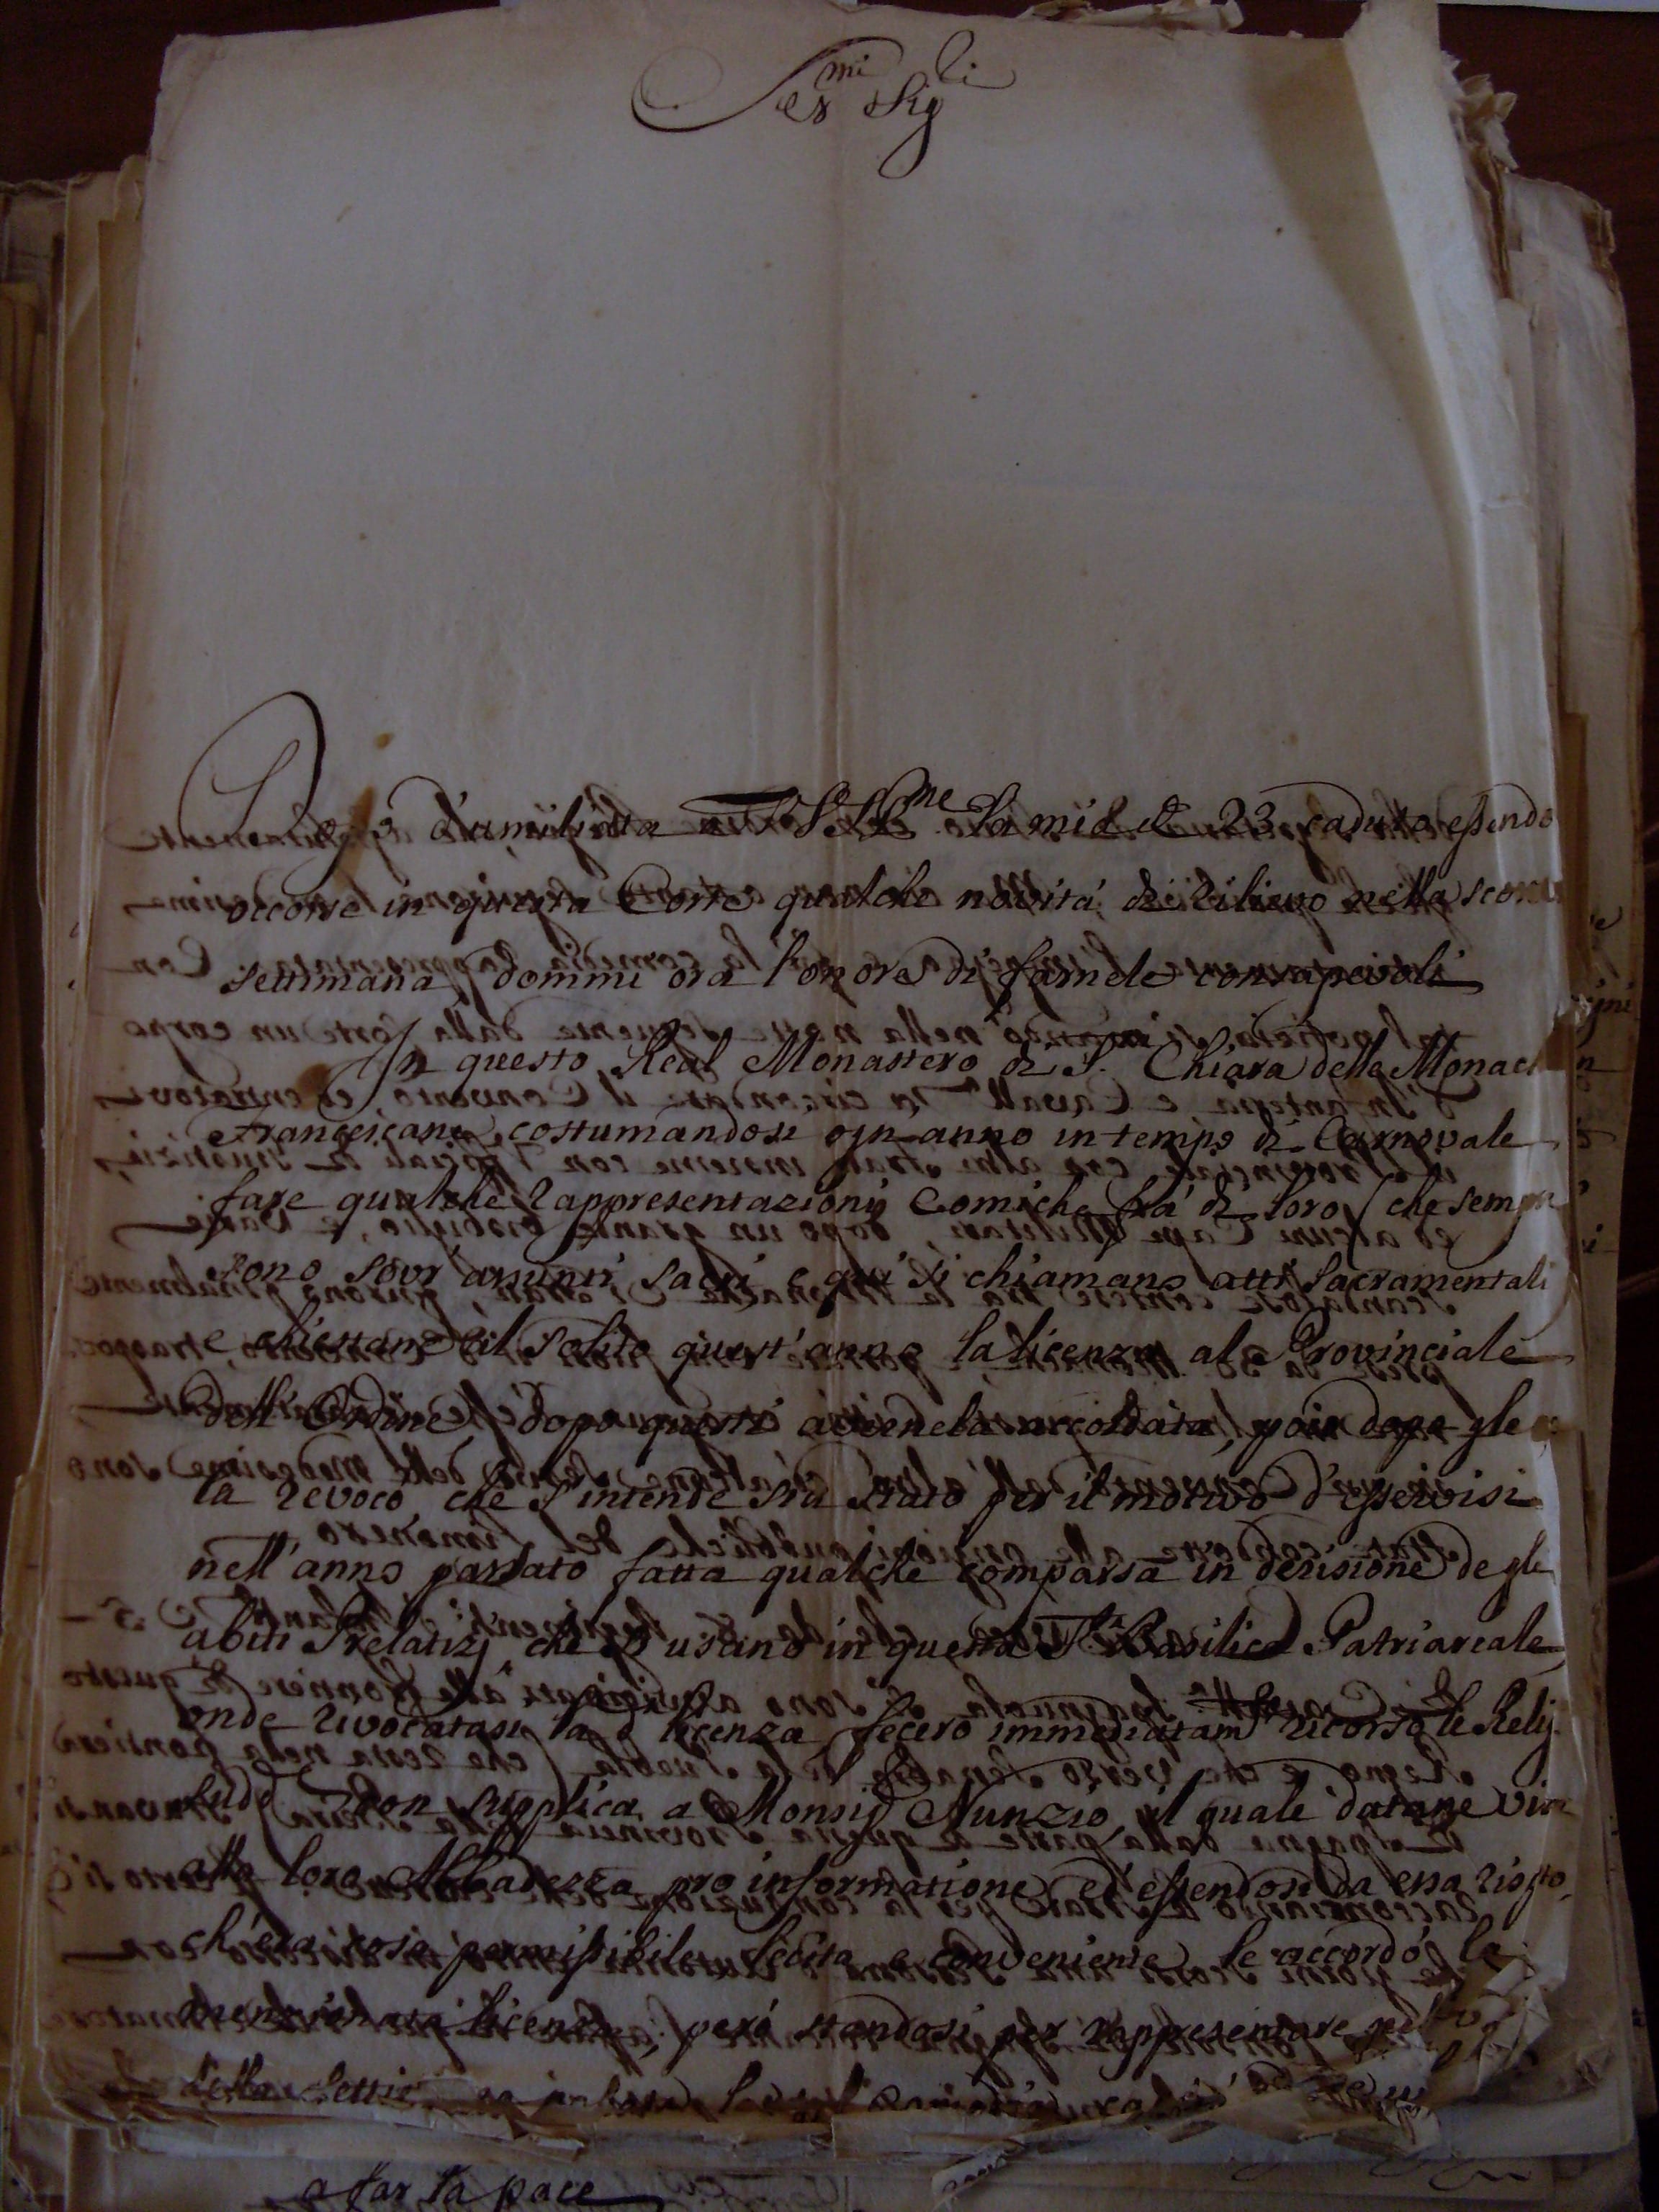 Ser.mi Sig.ri
Dopo d'umiliata a VV. SS. Ser.me la mia de 23 caduto essendo
occorse in questa Corte qualche novità di rilievo nella scorsa
settimana dommi ora l'onore di farnele consapevoli
In questo Real Monastero di S. Chiara delle Monache
Francescane, costumandosi ogn anno in tempo di Carnovale
fare qualche rappresentazionij Comiche frà di loro / che sempre
sono sovr' assunti sacri e qui si chiamano atti sacramentali
e chiestane al solito quest' anno la licenza al Provinciale
dell' Ordine, dopo questi avendela accordata, poi gle
la revocò che s'intende sia stato per il motivo d'esservisi
nell' anno passato fatta qualche comparsa in derisione de gle
abiti Prelatizj, che s' usano in questa S.ta Basilica Patriarcale
onde rivocatasi la d.a licenza, fecero immediatam.te ricorso le Relig.
sud.e con supplica a Monsig.r Nunzio, il quale datane vista
alla loro Abbadessa pro informatione, ed essendosi da essa risposto
ch' era cosa permissibile, lecita e conveniente, le accordò la
menzionata licenza, però standosi per rappresentare
della
a far la pace